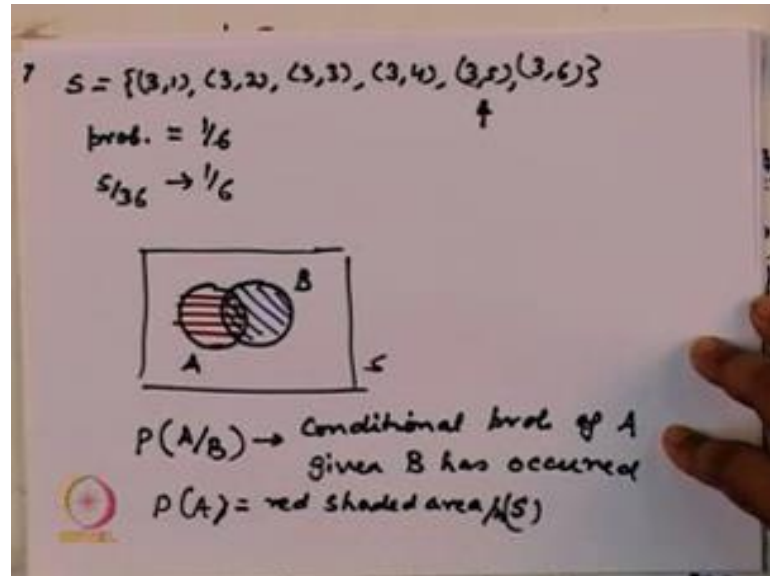 S = {(3,1), (3,2), (3,3), (3,4), (3,5), (3,6)}
prob. = 1/6
5/36 → 1/6
B
A
S
P(A/B) → Conditional prob of A
given B has occurred
P(A) = red shaded area/(S)